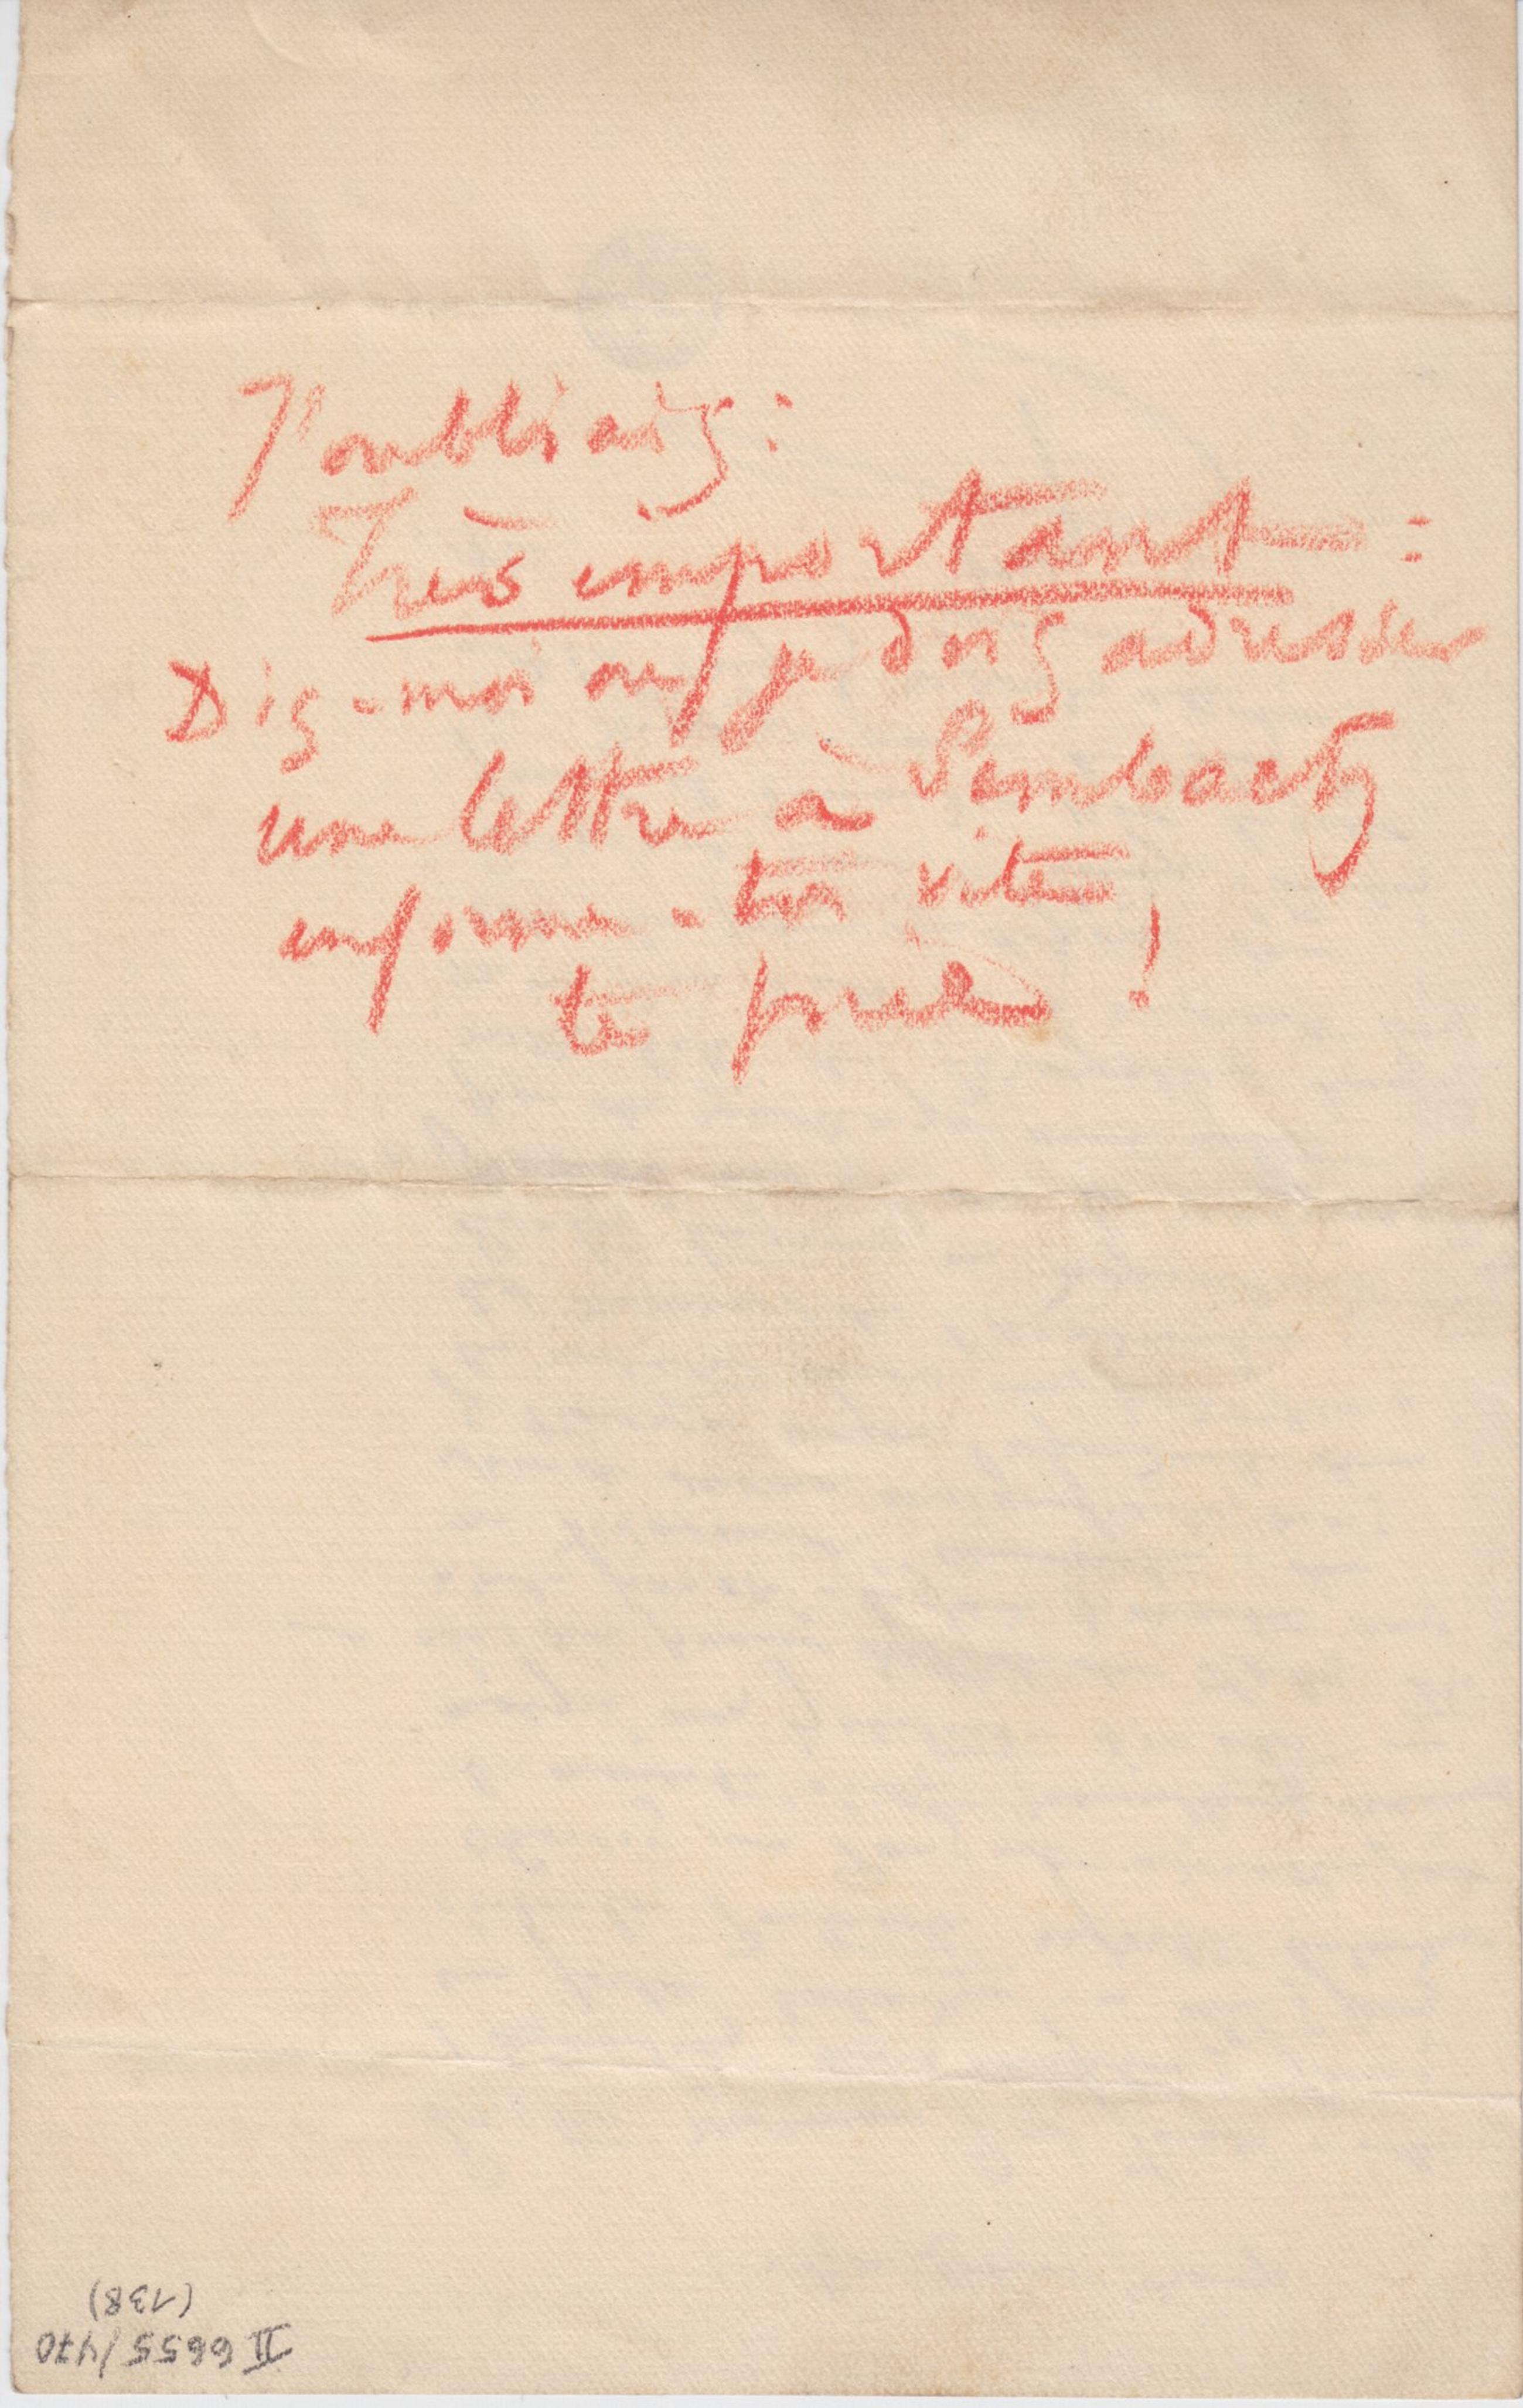 J'oubliais :
Très important :
Dis-moi où je dois adresser
une lettre à Sembach
informe-toi vite
te prie !
II 6655/470
(138)